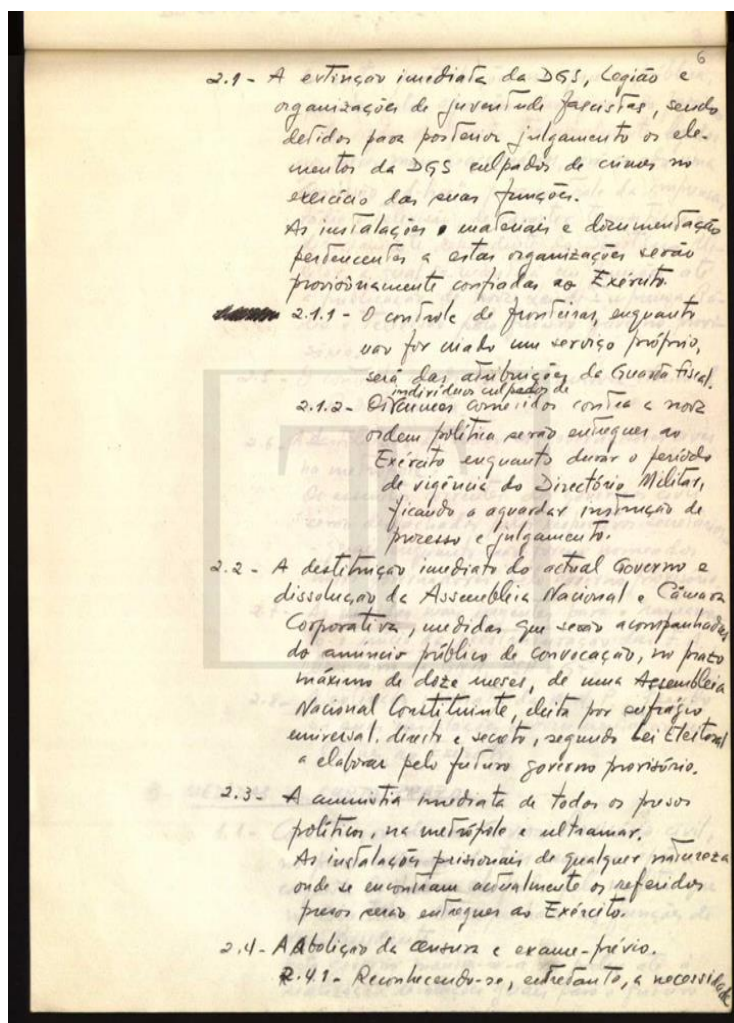 6
2.1 - A extinção imediata da DGS, Legião e
organizações de juventude fascistas, sendo
detidos para posterior julgamento os ele-
mentos da DGS culpados de crimes no
exercício das suas funções.
As instalações e materiais e documentação
pertencentes a estas organizações serão
provisoriamente confiadas ao Exército.
2.1.1 - O controle de fronteiras, enquanto
não for criado um serviço próprio,
será das atribuições da Guarda Fiscal.
indivíduos culpados de
2.1.2 - Os crimes cometidos contra a nova
ordem política serão entregues ao
Exército enquanto durar o período
de vigência do Directório Militar,
ficando a aguardar instrução de
processo e julgamento.
2.2 - A destituição imediata do actual Governo e
dissolução da Assembleia Nacional e Câmara
Corporativa, medidas que serão acompanhadas
do anúncio público de convocação, no prazo
máximo de doze meses, de uma Assembleia
Nacional Constituinte, eleita por sufrágio
universal, directo e secreto, segundo Lei Eleitoral
a elaborar pelo futuro governo provisório.
2.3 - A amnistia imediata de todos os presos
políticos, na metrópole e ultramar.
As instalações prisionais de qualquer natureza
onde se encontram actualmente os referidos
presos serão entregues ao Exército.
2.4 - A Abolição da censura e exame-prévio.
2.4.1 - Reconhecendo-se, entretanto, a necessidade